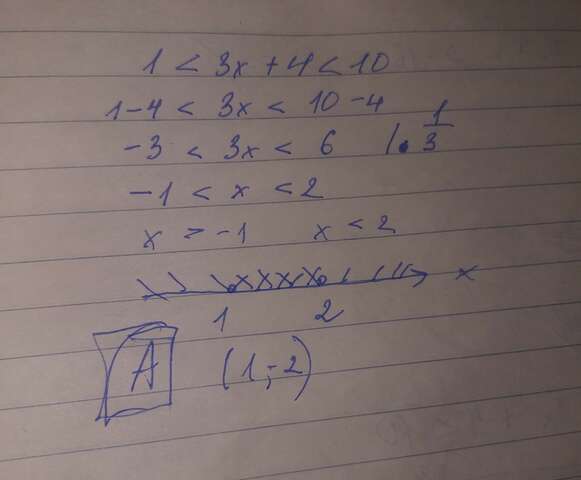 1 < 3x + 4 < 10
1-4 < 3x < 10-4
-3 < 3x < 6 /. 1/3
-1 < x < 2
x > -1 x < 2
x
1 2
A (1;-2)